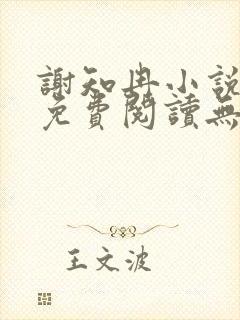 謝知冉小說
免費閱讀無
王文波